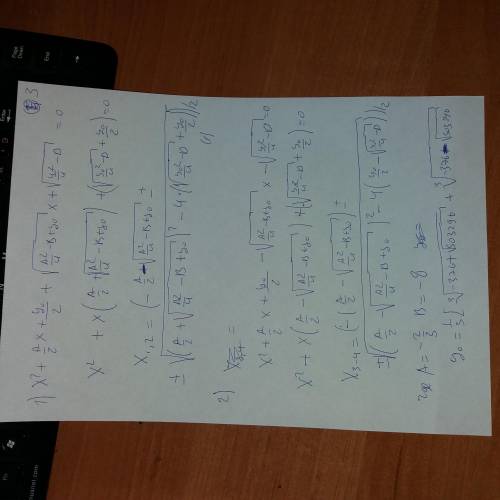 3
1) x² + A/2 x + y₀/2 + √(A²/4 - B + y₀) x + √(y₀²/4 - D) = 0
x² + x(A/2 + √(A²/4 - B + y₀)) + (√(y₀²/4 - D) + y₀/2) = 0
x₁,₂ = (-A/2 + √(A²/4 - B + y₀) ±
± √((A/2 + √(A²/4 - B + y₀))² - 4(√(y₀²/4 - D) + y₀/2)))/2
2)
x² + A/2 x + y₀/2 - √(A²/4 - B + y₀) x - √(y₀²/4 - D) = 0
x² + x(A/2 - √(A²/4 - B + y₀)) + (√(y₀²/4 - D) + y₀/2) = 0
x₃₋₄ = (-(A/2 - √(A²/4 - B + y₀)) ±
± √((A/2 - √(A²/4 - B + y₀))² - 4(y₀/2 - √(y₀²/4 - D))))/2
где A = -2/3 B = -8
y₀ = 1/3 [ ∛(-376 + √603290) + ∛(376 - √603290)
Page Down
End